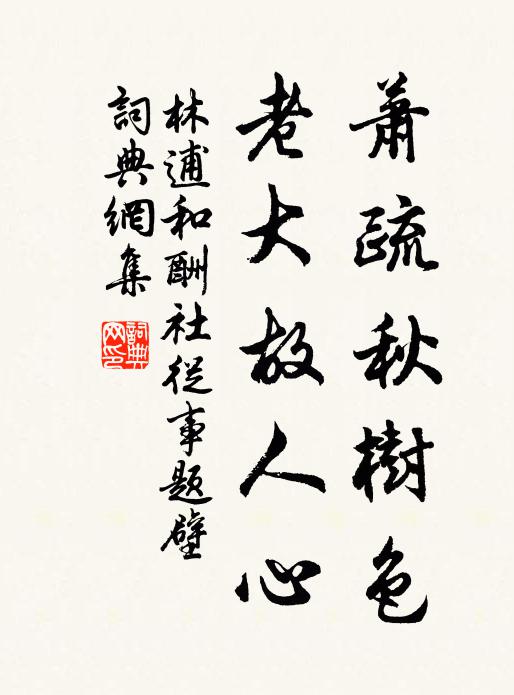 蕭疏秋樹色
老大故人心
林逋和酬社從事題壁
詞典網集
詞典網印